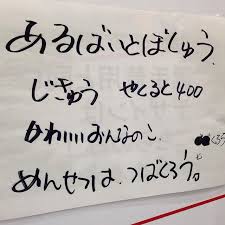 あるばいとぼしゅう.
じきゅう やくると400
かわいいおんなのこ.
めんせつは、つばくろう。